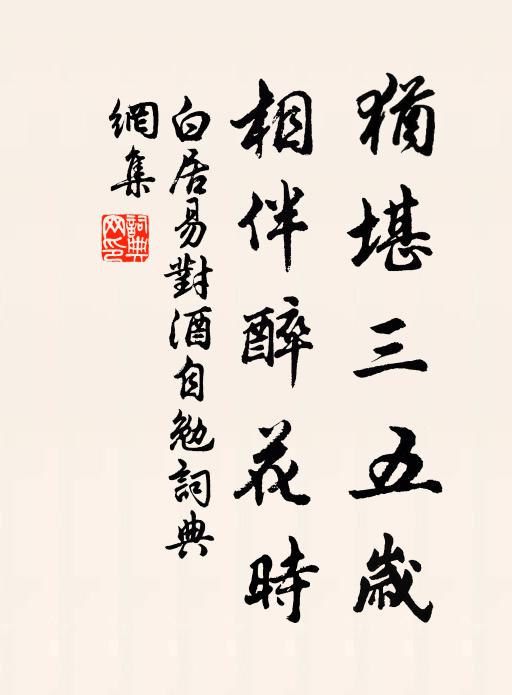 猶堪三五歲
相伴醉花時
白居易對酒自勉詞典
網集
詞典網印